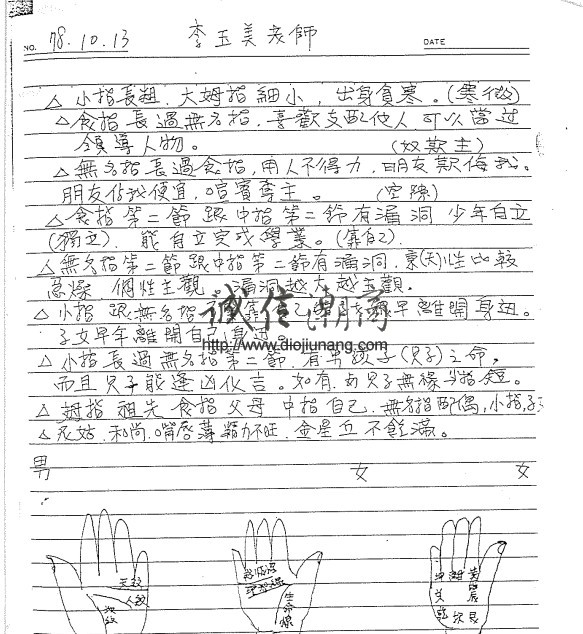 NO. 78.10.13 李玉美老師 DATE
△小指長粗.大姆指細小,出身貧寒。(寒微)
△食指長過無名指.喜歡支配他人可以當过
領導人物。(奴欺主)
△無名指長過食指,用人不得力,朋友欺侮我.
朋友佔我便宜,喧賓奪主。(空隙)
△食指第二節跟中指第二節有漏洞 少年自立
(獨立).能自立完成學業。(靠自己).
△無名指第二節跟中指第二節有漏洞,性比較
急燥.個性主觀.漏洞越大越主觀.
△小指跟無名指 早離開身边.
子女早年離開自己身边
△小指長過無名指第二節.有男孩子(兒子)之命,
而且兒子能逢凶化吉。如有.兒子無緣指短。
△姆指祖先 食指父母 中指自己.無名指配偶,小指子
△尼姑.和尚.嘴唇薄 精力不旺.金星丘不飽滿。
男 女 女
天紋
人紋
地紋
生命線
誠信
www.diojiunang.com